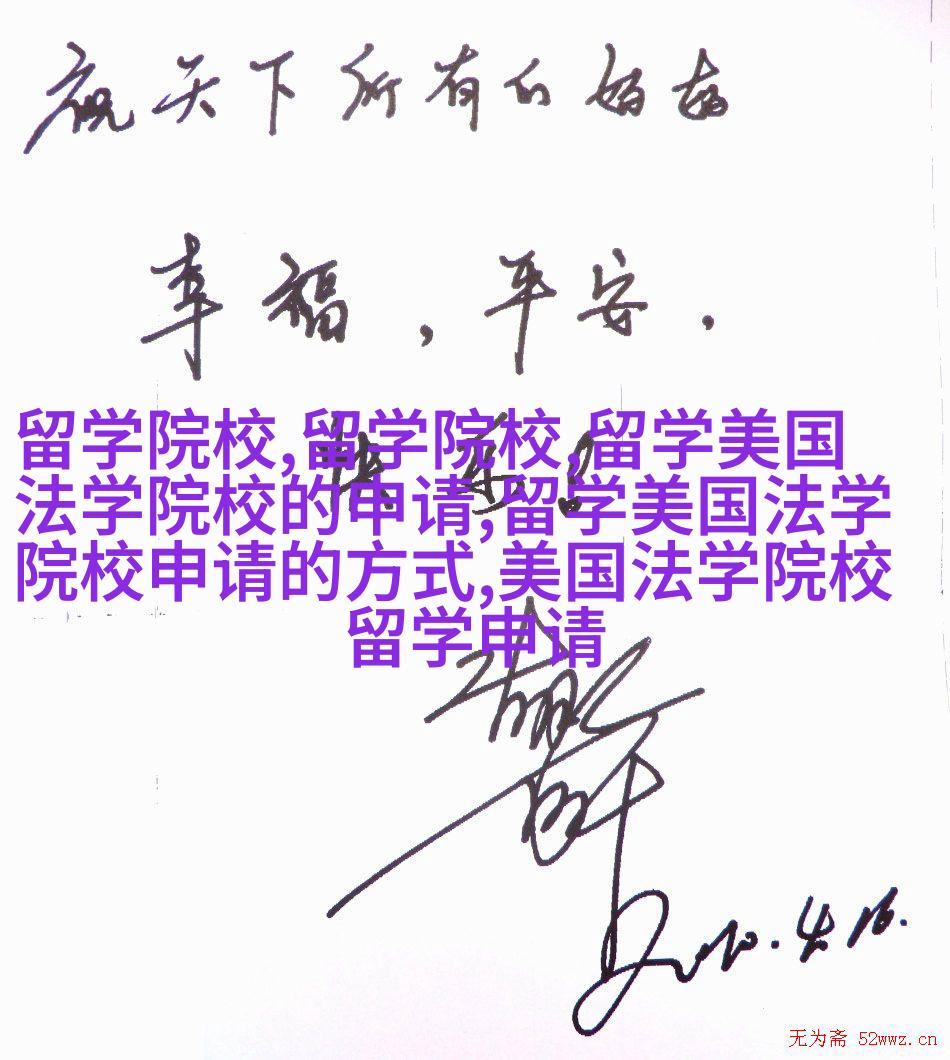 祝天下所有的妈妈
幸福，平安，
快乐！
留学院校,留学院校,留学美国
法学院校的申请,留学美国法学
院校申请的方式,美国法学院校
留学申请
2010.4.16.
无为斋 52wwz.cn